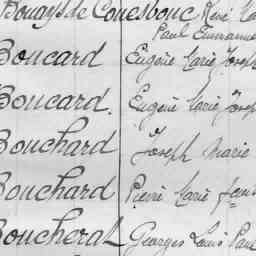 Bouays de Couesbouc René
Paul Emmanuel
Boucard Eugène Marie Joseph
Boucard. Eugène Marie Joseph
Bouchard Joseph Marie
Bouchard Pierre Marie
Boucheral Georges Louis Paul